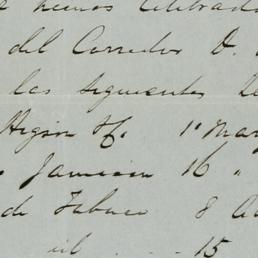 hemos celebrado
del Corredor D.
las siguientes
Higin 1º May
Jamaica 16 "
de Tabaco 8
id 15